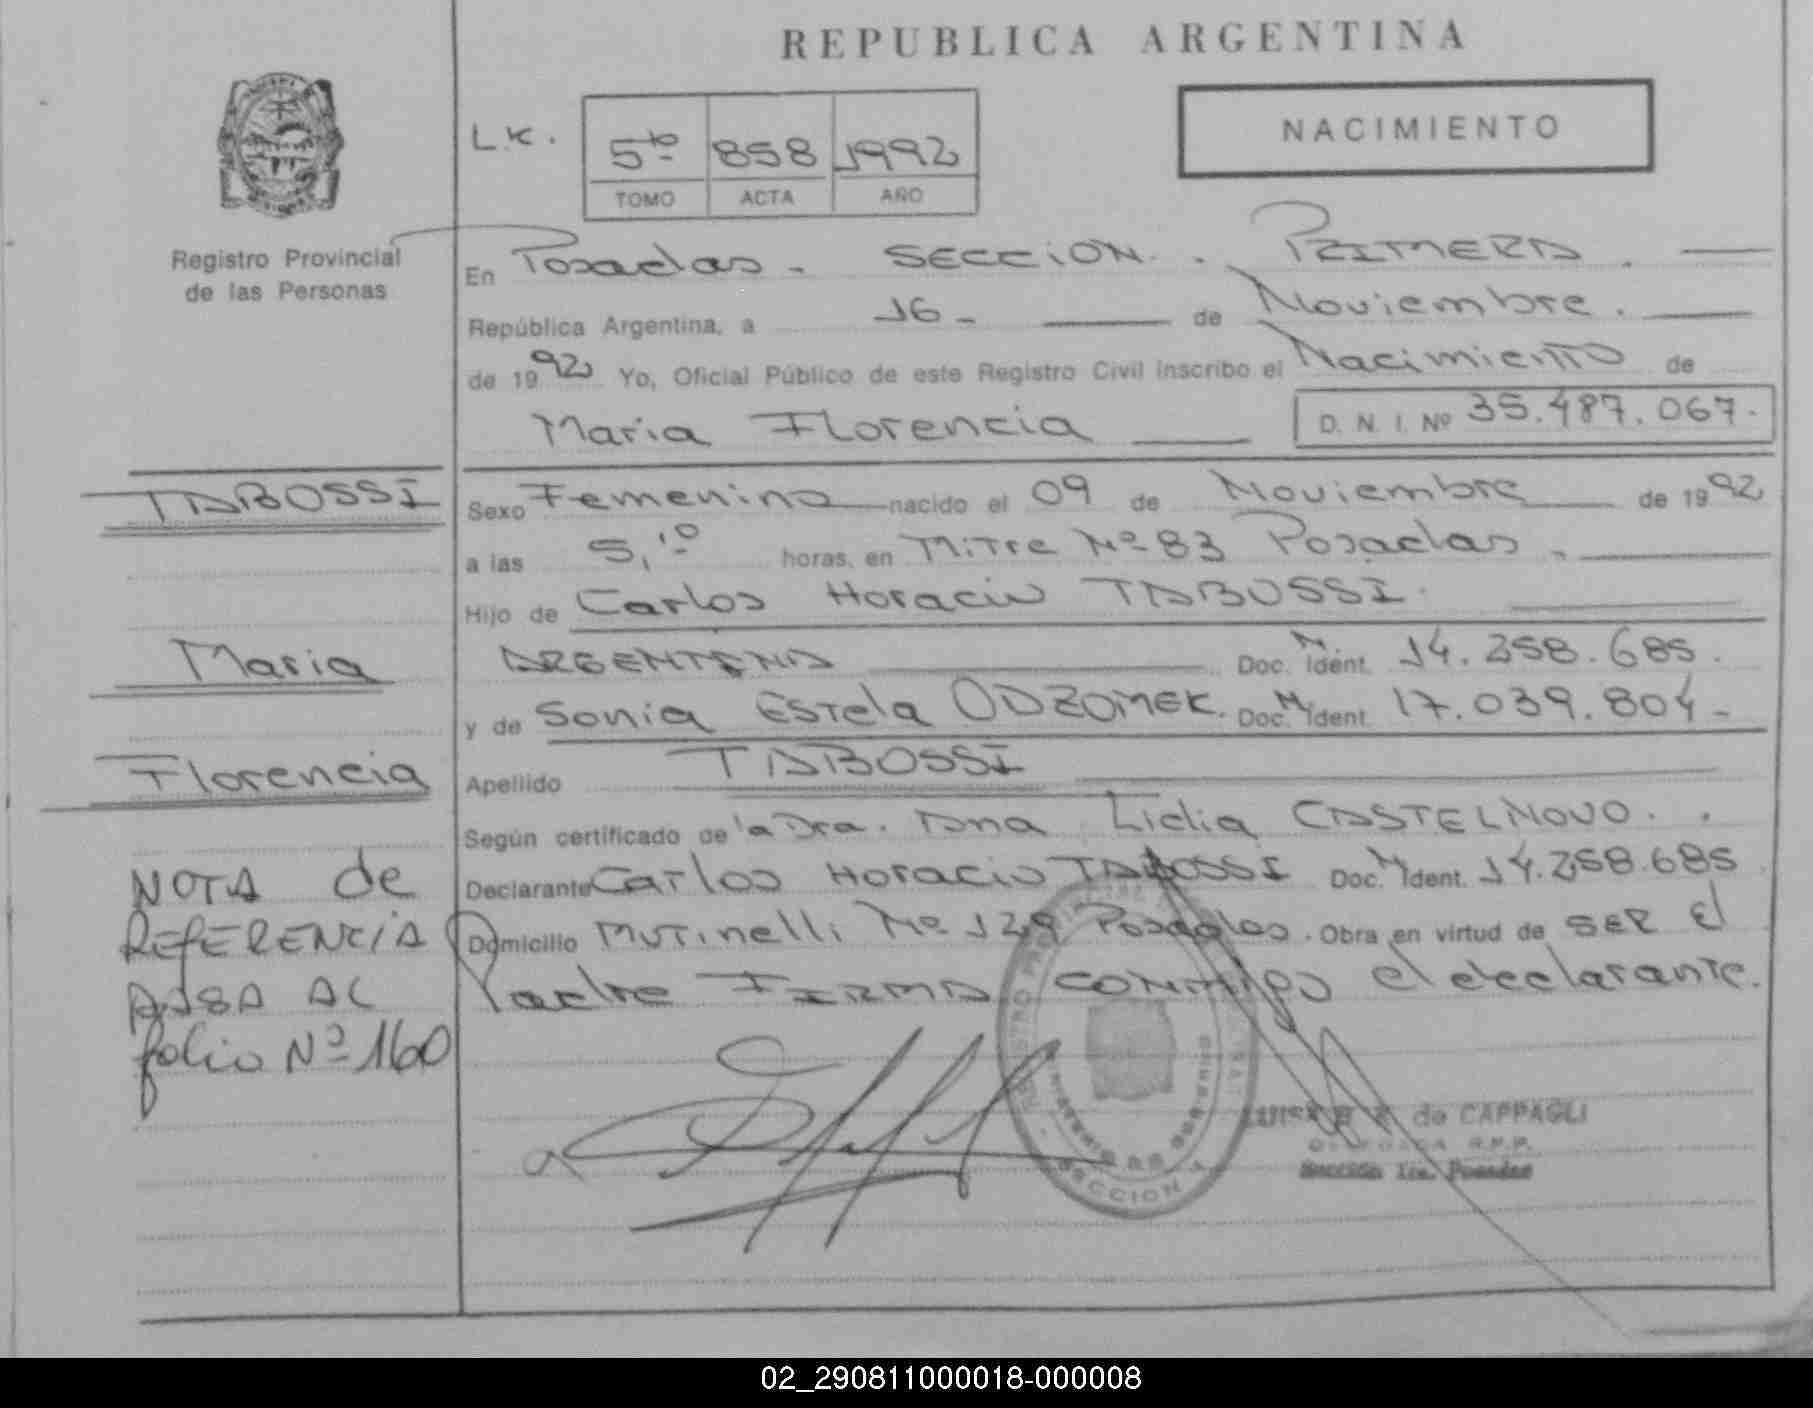 REPUBLICA ARGENTINA
NACIMIENTO
L.K. 5to 858 1992
TOMO ACTA AÑO
Registro Provincial
de las Personas
En Posadas. SECCION. PRIMERA.
República Argentina, a 16 - de Noviembre.
de 1992 Yo, Oficial Público de este Registro Civil inscribo el Nacimiento de
Maria Florencia D. N. I. Nº 35.487.067.
TABOSSI
Maria
Florencia
NOTA de
REFERENCIA
PASA AL
folio Nº 160
Sexo Femenino nacido el 09 de Noviembre de 1992
a las 5,10 horas, en Mitre Nº 83 Posadas.
Hijo de Carlos Horacio TABOSSI.
ARGENTINA Doc. M Ident. 14.258.685.
y de Sonia Estela ODZOMEK. Doc. M Ident. 17.039.804-
Apellido TABOSSI
Según certificado de la Dra. Ana Lidia CASTELNOVO.
Declarante Carlos Horacio TABOSSI Doc. M Ident. 14.258.685
Domicilio Mutinelli Nº 129 Posadas. Obra en virtud de SER El
Padre FIRMA CONMIGO el declarante.
SECCION
LUISA B de CAPPAGLI
Sección 1ra. Posadas
02_290811000018-000008